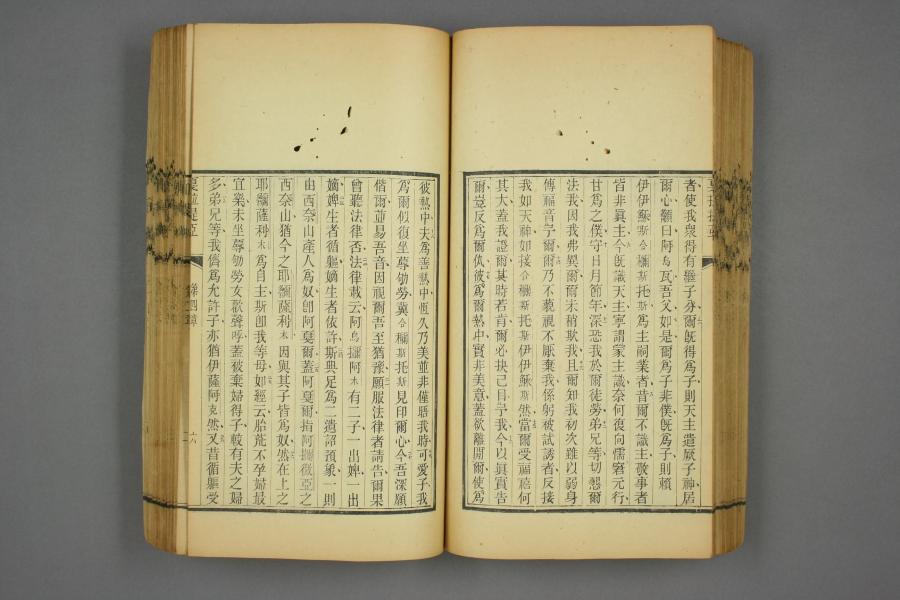 者使我衆得有繼子分爾旣得爲子則天主遣厥子神居
爾心籲曰阿烏瓦吾父如是爾爲子非僕旣爲子則賴
伊伊穌斯合穪斯托斯爲主嗣業者昔爾不識主敬事者
皆非眞主今旣識天主寧謂蒙主識奈何復向懦窘元行
甘爲之僕守日月節年深恐我於爾徒勞弟兄等切懇爾
法我因我弗異爾爾未稍欺我且爾知我初次雖以弱身
傳福音予爾爾乃不藐視不厭棄我係躬被試誘者反接
我如天神如接合穪斯托斯伊伊穌斯然當爾受福禧何
其大蓋我證爾某時若肯爾必抉己目予我今以眞實告
爾豈反爲爾仇彼爲爾熱中實非美意蓋欲離間爾使爲
彼熱中夫爲善熱中恆久乃美並非僅語我時可愛子我
爲爾似復坐蓐劬勞冀合穪斯托斯見印爾心今吾深願
偕爾並易吾音因視爾吾至猶豫願服法律者請告爾果
曾聽法律否法律載云阿烏攔阿木有二子一出婢一出
嫡婢生者循軀嫡生者依許斯與足爲二遺詔預象一則
由西奈山產人爲奴卽阿戛爾蓋阿戛爾指阿攔微亞之
西奈山猶今之耶嚻薩利木因與其子皆爲奴然在上之
耶嚻薩利木爲自主斯卽我等母如經云胎荒不孕婦最
宜樂未坐蓐劬勞女歡聲呼蓋被棄婦得子較有夫之婦
多弟兄等我儕爲允許子亦猶伊薩阿克然又昔循軀受